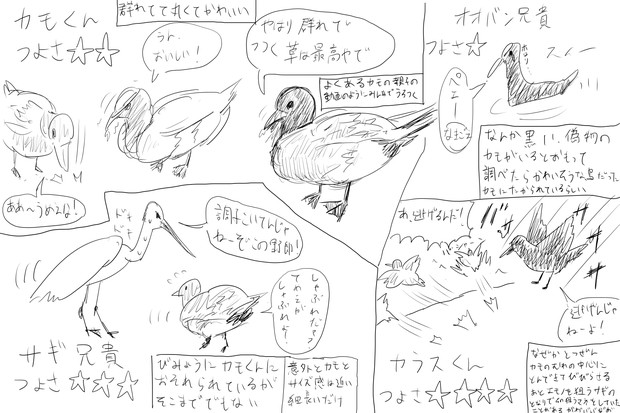 カモくん
つよさ☆☆
群れてて丸くてかわいい
うん、
おいしい!
やはり群れで
つつく
草は最高やで
よくあるカモの親子の
動画のようにみんなでうろつく
ああ〜うめェな!
オオバン兄貴
つよさ☆
スイー
ペエー
なんか黒い、偽物の
カモがいるとおもって
調べたらかわいそうな鳥だった
カモにたかられているらしい
ドキ
ドキ
調子こいてんじゃ
ねーぞこの野郎!
しゃぶれだァ?
てめェが
しゃぶれや!
サギ兄貴
つよさ☆☆☆
びみょうにカモくんに
おそれられているが
そこまででもない
意外とカモと
サイズ感は近い
細長いだけ
あ、逃げるんだ!
逃げんじゃ
ねーよ!
カラスくん
つよさ☆☆☆☆
なぜかとつぜん
カモのむれの中心に
とんできてびびらせる